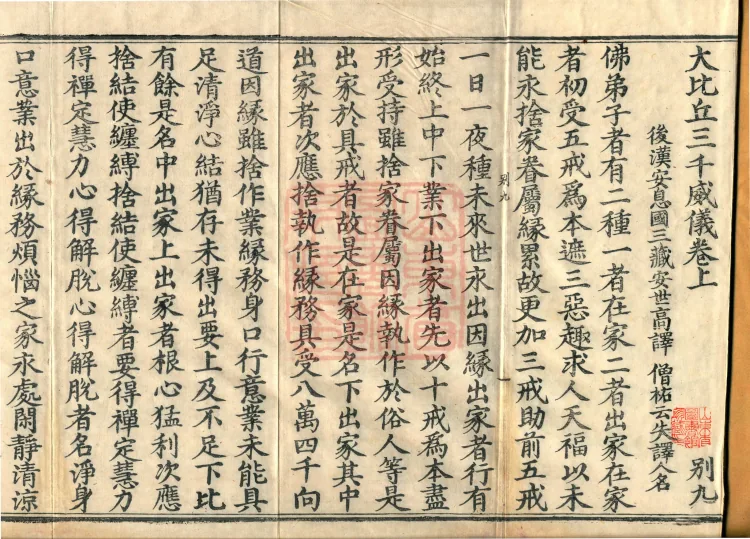 大比丘三千威儀卷上
別九
後漢安息國三藏安世高譯 僧祐云失譯人名
佛弟子者有二種一者在家二者出家在家
者初受五戒爲本遮三惡趣求人天福以未
能永捨家眷屬緣累故更加三戒助前五戒
一日一夜種未來世永出因緣出家者行有
別九
始終上中下業下出家者先以十戒爲本盡
形受持雖捨家眷屬因緣執作於俗人等是
出家於具戒者故是在家是名下出家其中
出家者次應捨執作緣務具受八萬四千向
道因緣雖捨作業緣務身口行意業未能具
足清淨心結猶存未得出要上及不足下比
有餘是名中出家上出家者根心猛利次應
捨結使纏縛捨結使纏縛者要得禪定慧力
得禪定慧力心得解脫心得解脫者名淨身
口意業出於緣務煩惱之家永處閑靜清涼